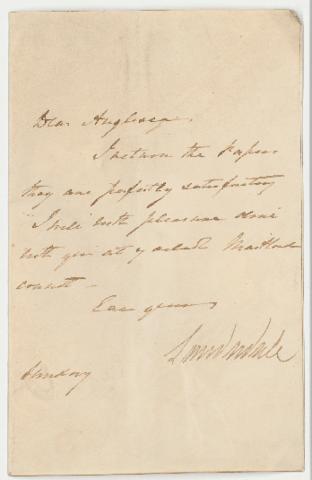 Dear Anglesey,
I return the Papers
they are perfectly satisfactory
I will with pleasure dine
with you at 7 o'clock
Ever yours,
Lauderdale
Sunday